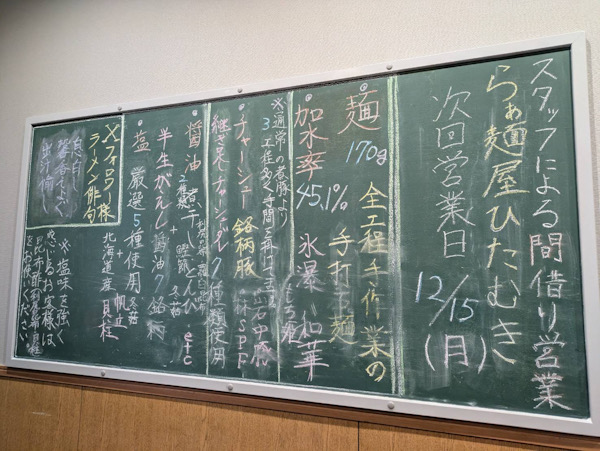 スタッフによる間借り営業
らぁ麺屋ひたむき
次回営業日
12/15(月)
麺 170g 全工程手作業の
手打ち麺
加水率 45.1% 氷瀑 和華
もち姫
※通常の煮豚より
3工程多く時間を掛けて
チャーシュー 銘柄豚
継ぎ足しチャーシューダレ 7種類使用
SPF
醤油 煮干し とんび
利尻昆布 羅臼昆布
椎茸 + 鰹節 etc
半生がえし 醤油 7銘柄
塩 厳選5種使用
+ 帆立
北海道産 貝柱
Xフォロワー様
ラーメン俳句
息白し
※塩味を強く
感じるお客様は
昆布酢
お使いください